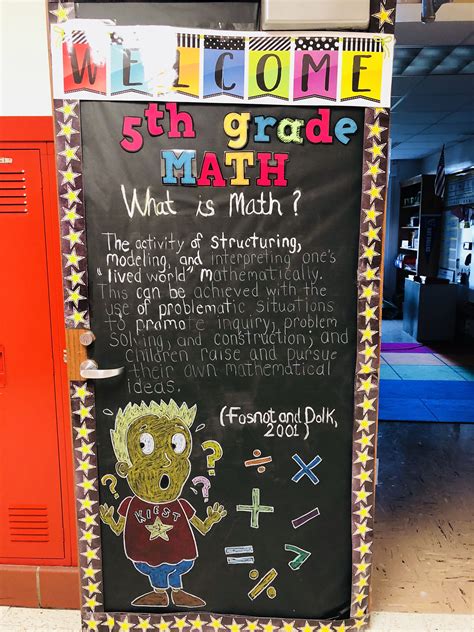 WELCOME
5th grade
MATH
What is Math?
The activity of structuring,
modeling, and interpreting one's
"lived world" mathematically.
This can be achieved with the
use of problematic situations
to promote inquiry, problem
solving, and construction; and
children raise and pursue
their own mathematical
ideas.
(Fosnot and Dolk,
2001)
? ? ? ?
÷ ×
+ -
= >
÷
KIEST